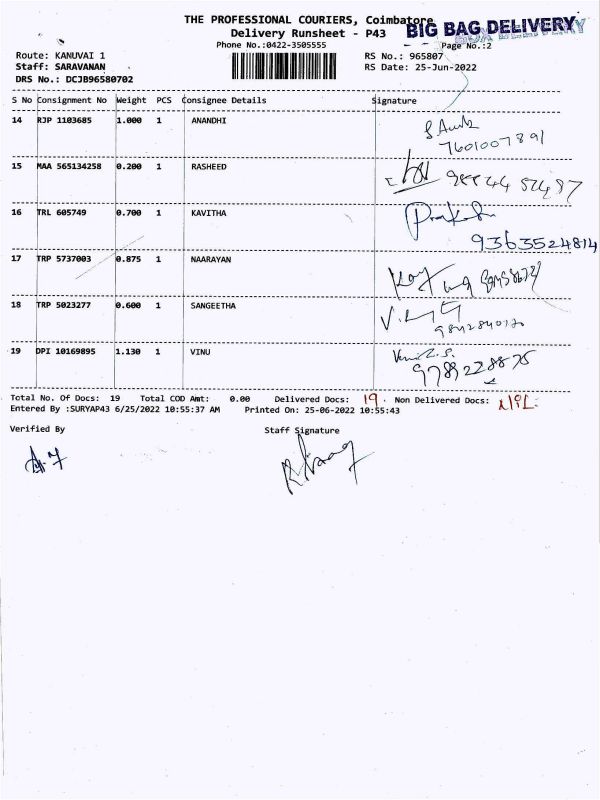 THE PROFESSIONAL COURIERS, Coimbatore
BIG BAG DELIVERY
Delivery Runsheet - P43
Phone No.:0422-3505555
Page No.:2
Route: KANUVAI 1
RS No.: 965807
Staff: SARAVANAN
RS Date: 25-Jun-2022
DRS No.: DCJB96580702
S No Consignment No Weight PCS Consignee Details Signature
14 RJP 1103685 1.000 1 ANANDHI
7601007891
15 MAA 565134258 0.200 1 RASHEED
16 TRL 605749 0.700 1 KAVITHA
9363524814
17 TRP 5737003 0.875 1 NAARAYAN
18 TRP 5023277 0.600 1 SANGEETHA
19 DPI 10169895 1.130 1 VINU
9789228875
Total No. Of Docs: 19 Total COD Amt: 0.00 Delivered Docs: 19. Non Delivered Docs: NIL.
Entered By :SURYAP43 6/25/2022 10:55:37 AM Printed On: 25-06-2022 10:55:43
Verified By Staff Signature